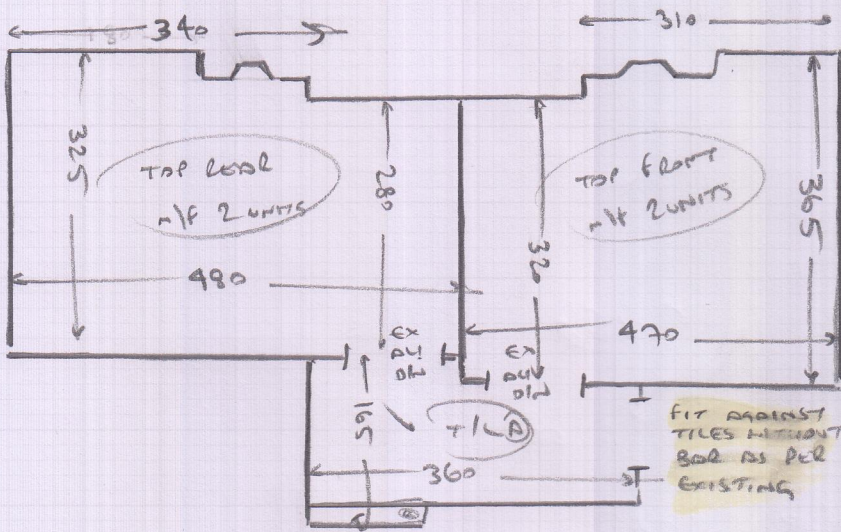 340
310
325
TOP REAR
M/F 2 UNITS
280
TOP FRONT
M/F 2 UNITS
320
365
480
470
EX
EX
165
T/L
360
FIT AGAINST
TILES WITHOUT
BAR AS PER
EXISTING